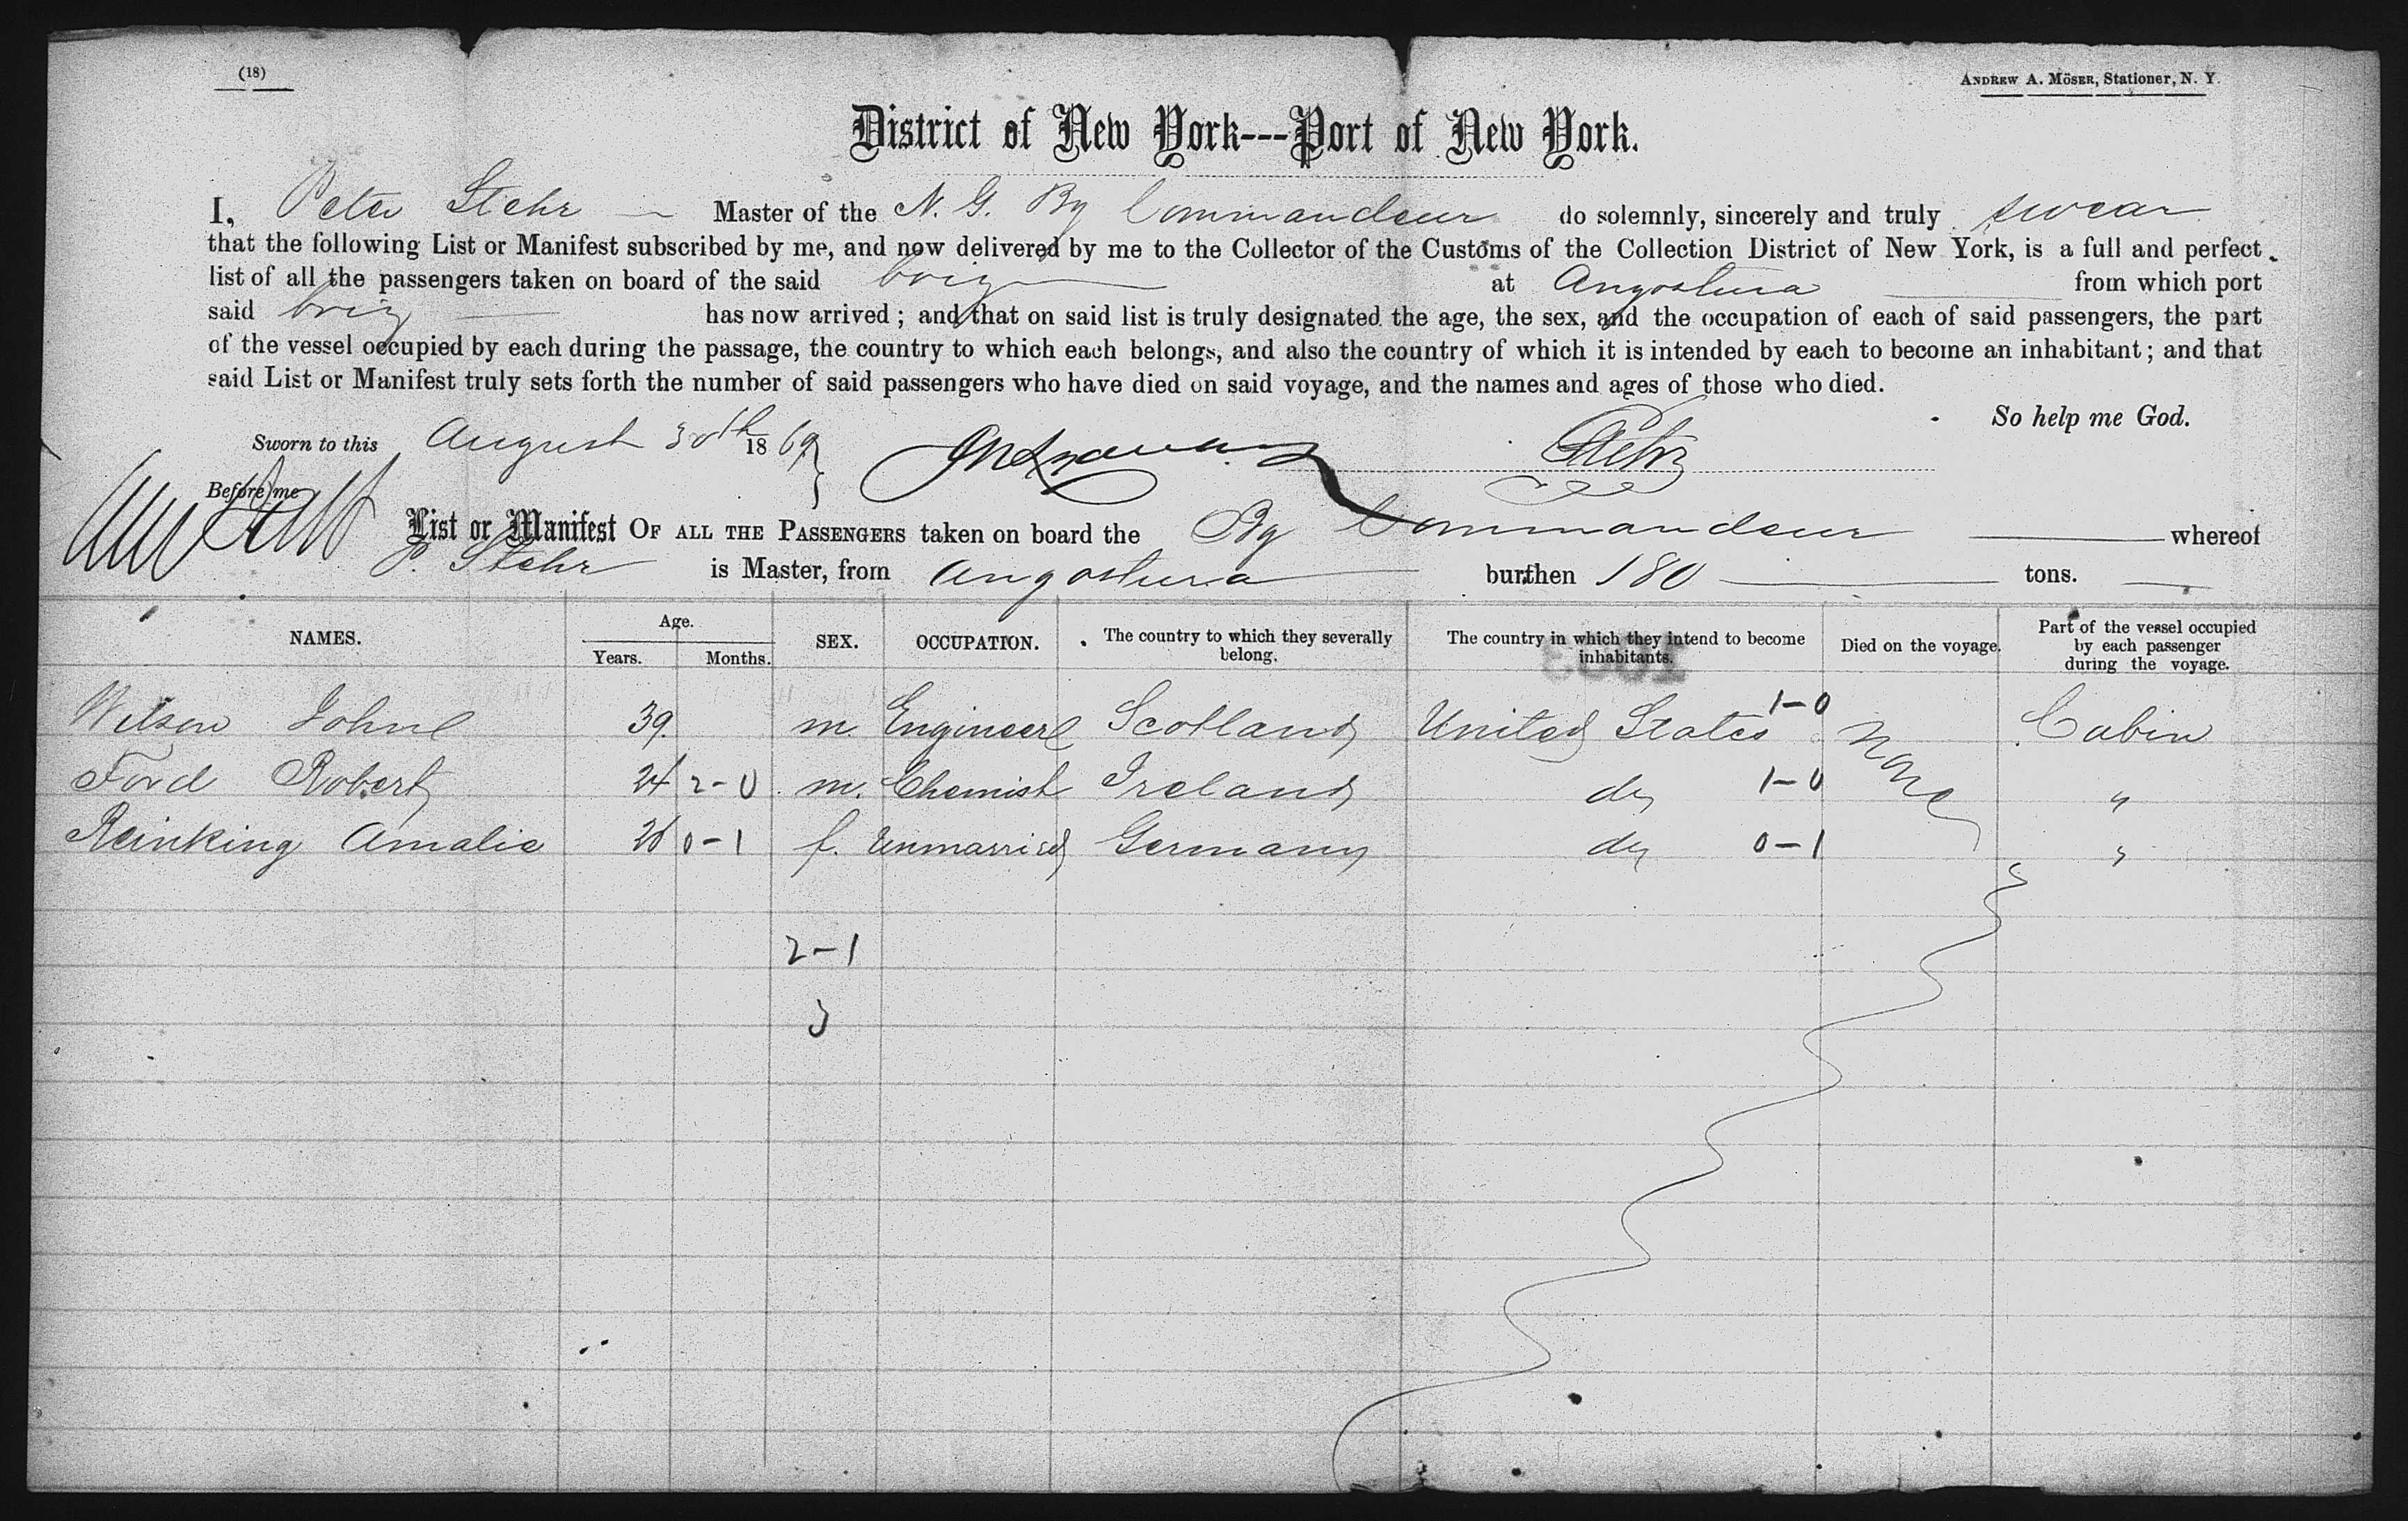 (18)
ANDREW A. MÖSER, Stationer, N. Y.
District of New York---Port of New York.
I, Peter Stehr Master of the N. G. Bg Commandeur do solemnly, sincerely and truly swear
that the following List or Manifest subscribed by me, and now delivered by me to the Collector of the Customs of the Collection District of New York, is a full and perfect
list of all the passengers taken on board of the said brig at Angostura from which port
said brig has now arrived; and that on said list is truly designated the age, the sex, and the occupation of each of said passengers, the part
of the vessel occupied by each during the passage, the country to which each belongs, and also the country of which it is intended by each to become an inhabitant; and that
said List or Manifest truly sets forth the number of said passengers who have died on said voyage, and the names and ages of those who died.
So help me God.
Sworn to this August 30th 1869
Before me
List or Manifest OF ALL THE PASSENGERS taken on board the Bg Commandeur whereof
P. Stehr is Master, from Angostura burthen 180 tons.
NAMES. Age. Years. Months. SEX. OCCUPATION. The country to which they severally belong. The country in which they intend to become inhabitants. Died on the voyage. Part of the vessel occupied by each passenger during the voyage.
Wilson John 39. m. Engineer Scotland United States 1-0 None Cabin
Ford Robert 24 2-0 m. Chemist Ireland do 1-0 "
Reinking Amalie 26 0-1 f. Unmarried Germany do 0-1 "
2-1
3